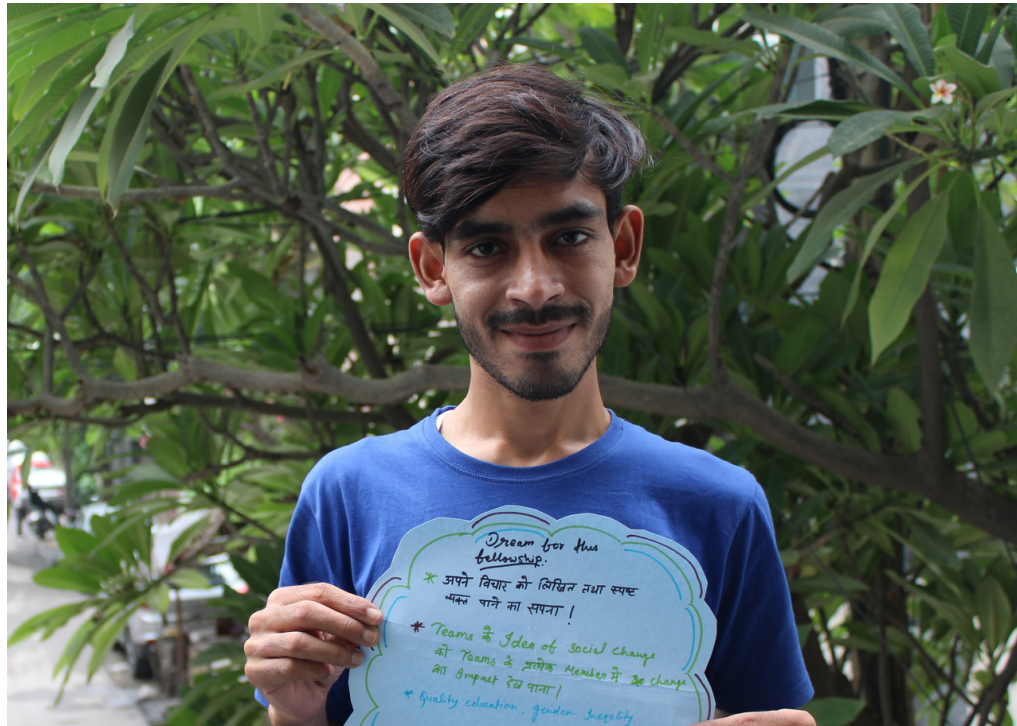 Dream for this
fellowship.
* अपने विचार को लिखित तथा स्पष्ट
व्यक्त पाने का सपना !
* Teams के Idea of Social Change
को Teams के प्रत्येक Member में change
का Impact देख पाना !
* Quality education, gender Inequlity.